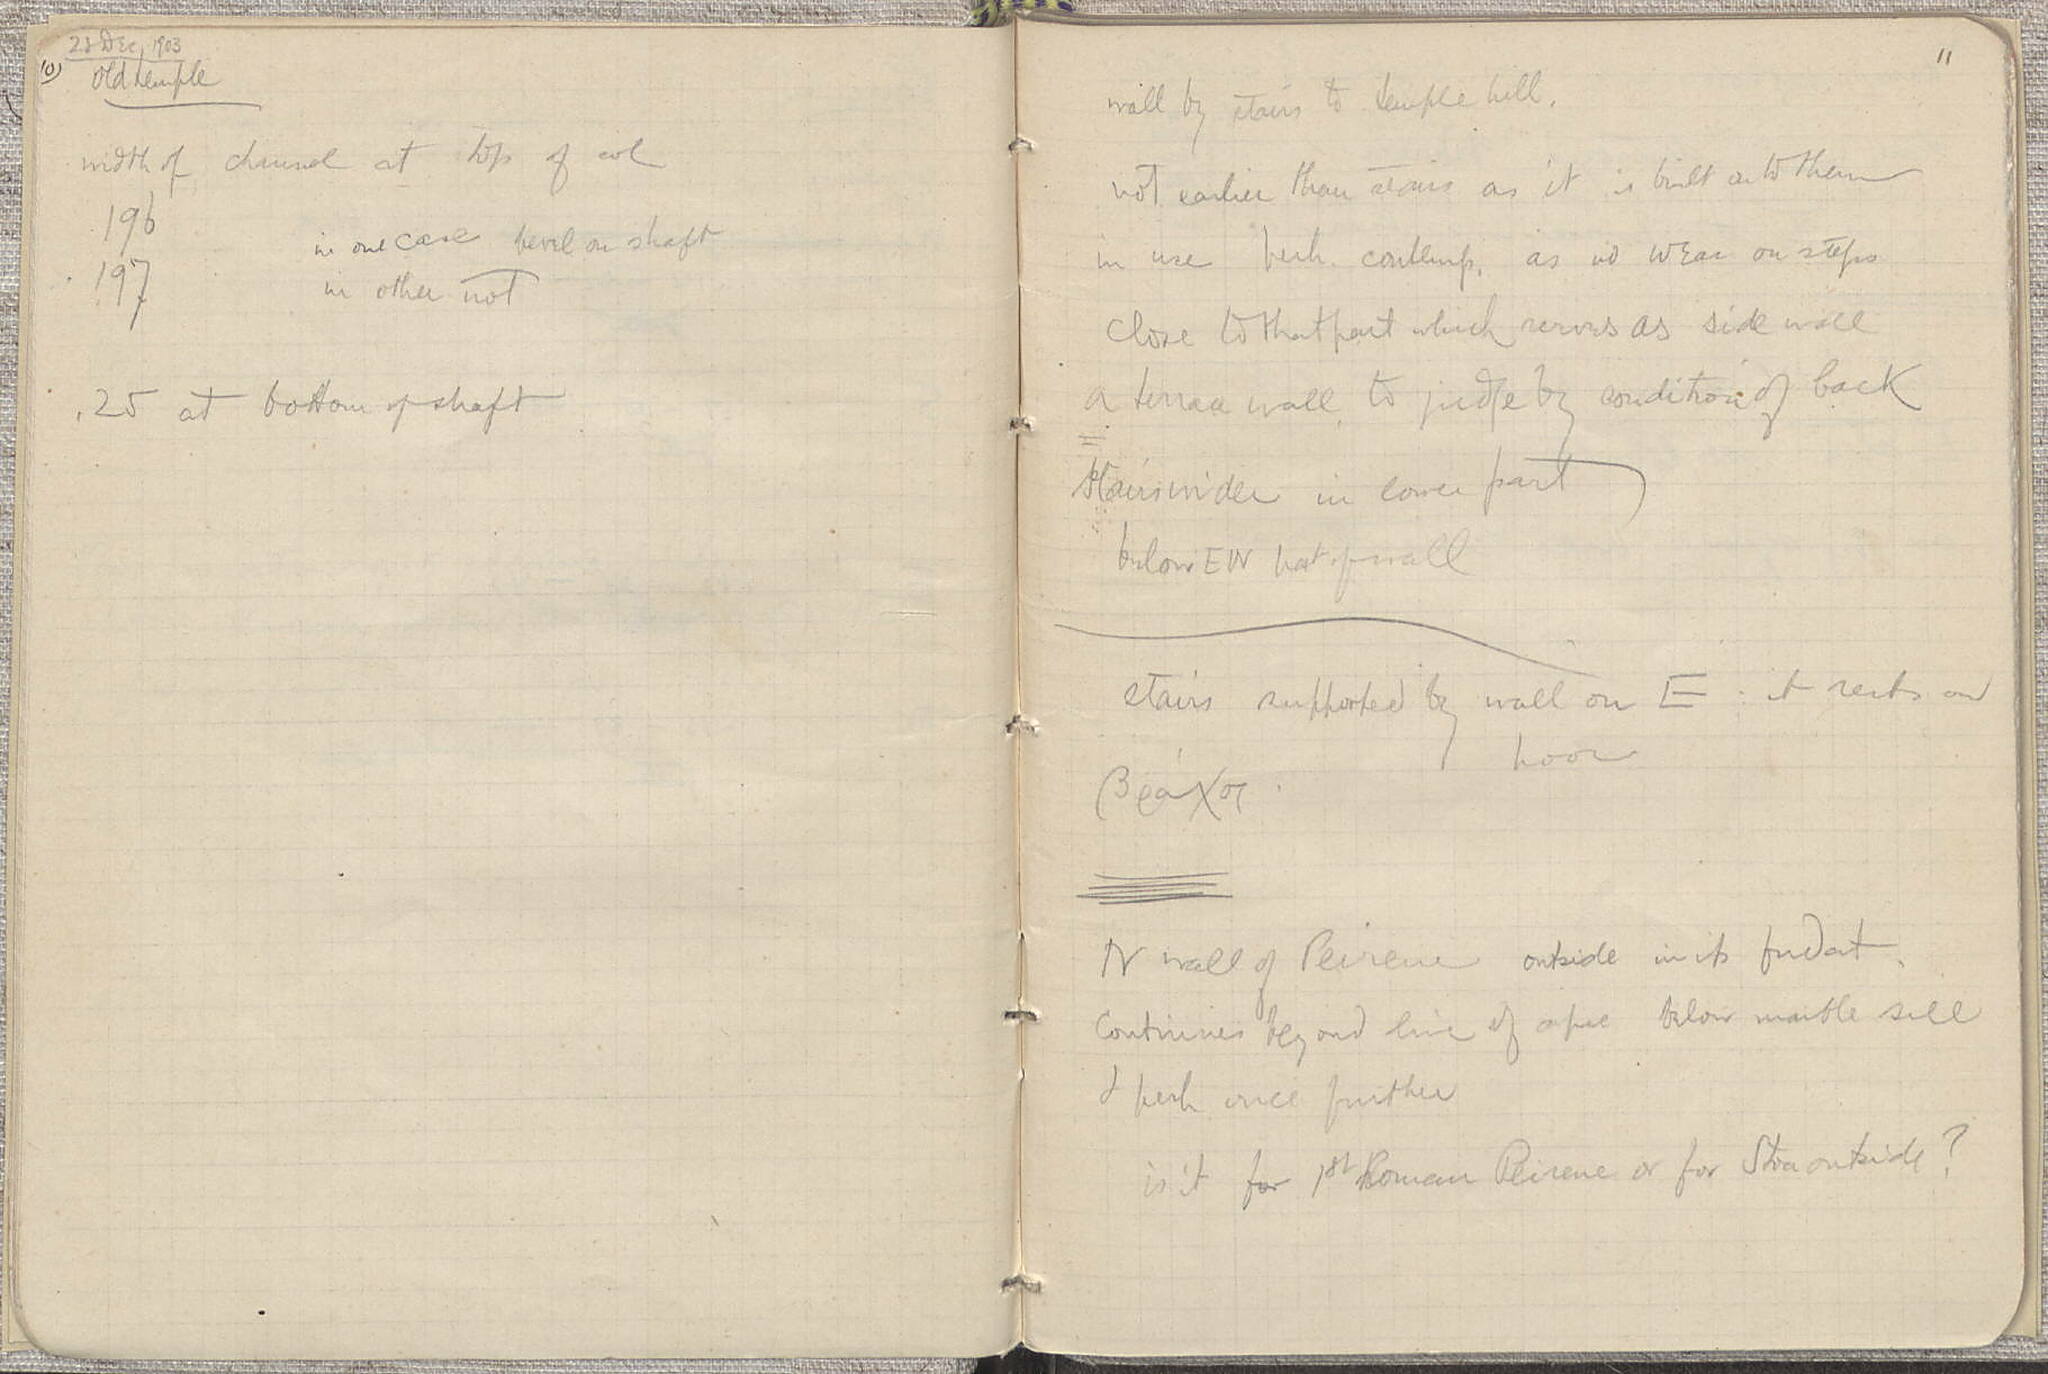 28 Dec, 1903
10)
Old temple
width of channel at top of col
196
in one case bevel on shaft
197
in other not
.25 at bottom of shaft
11
wall by stairs to temple hill.
not earlier than stairs as it is built onto them
in use perh. contemp. as no wear on steps
close to that part which serves as side wall
a terrace wall to judge by condition of back
Stairs wider in lower part
below EW part of wall
stairs supported by wall on E : it rests on
poor
βράχος.
N wall of Peirene outside in its fndat.
Continues beyond line of apse below marble sill
& perh once further
is it for 1st Roman Peirene or for Stoa outside?